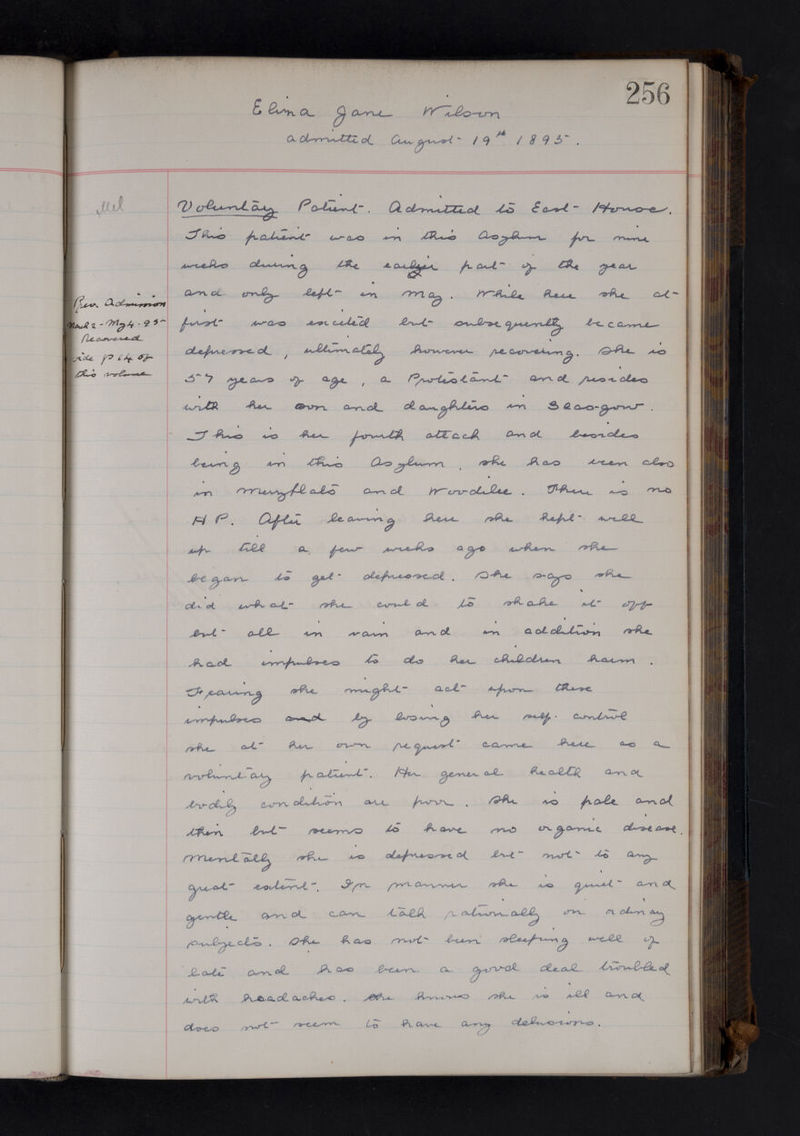 256
Elina Jane Wilson
admitted August 19th 1895.
Mel
Prev. Admission
March 2 - May 4 - 95
Recovered
vide p 64 of
this volume
Voluntary Patient. Admitted to East House.
This patient was in this Asylum for nine
weeks during the earlier part of the year
and only left in May. While here she at
first was excited but subsequently became
depressed, ultimately however recovering. She is
57 years of age, a Protestant and resides
with her son and daughters in Glasgow.
This is her fourth attack and besides
being in this Asylum, she has been also
in Merryflats and Woodilee. There is no
H P. After leaving here she kept well
up till a few weeks ago when she
began to get depressed. She says she
did what she could to shake it off
but all in vain and in addition she
had impulses to do her children harm.
Fearing she might act upon these
impulses and by losing her self-control
she at her own request came here as a
voluntary patient. Her general health and
bodily condition are poor. She is pale and
thin but seems to have no organic disease.
Mentally she is depressed but not to any
great extent. In manner she is quiet and
gentle and can talk rationally on ordinary
subjects. She has not been sleeping well of
late and has been a good deal troubled
with headaches. She knows she is ill and
does not seem to have any delusions.